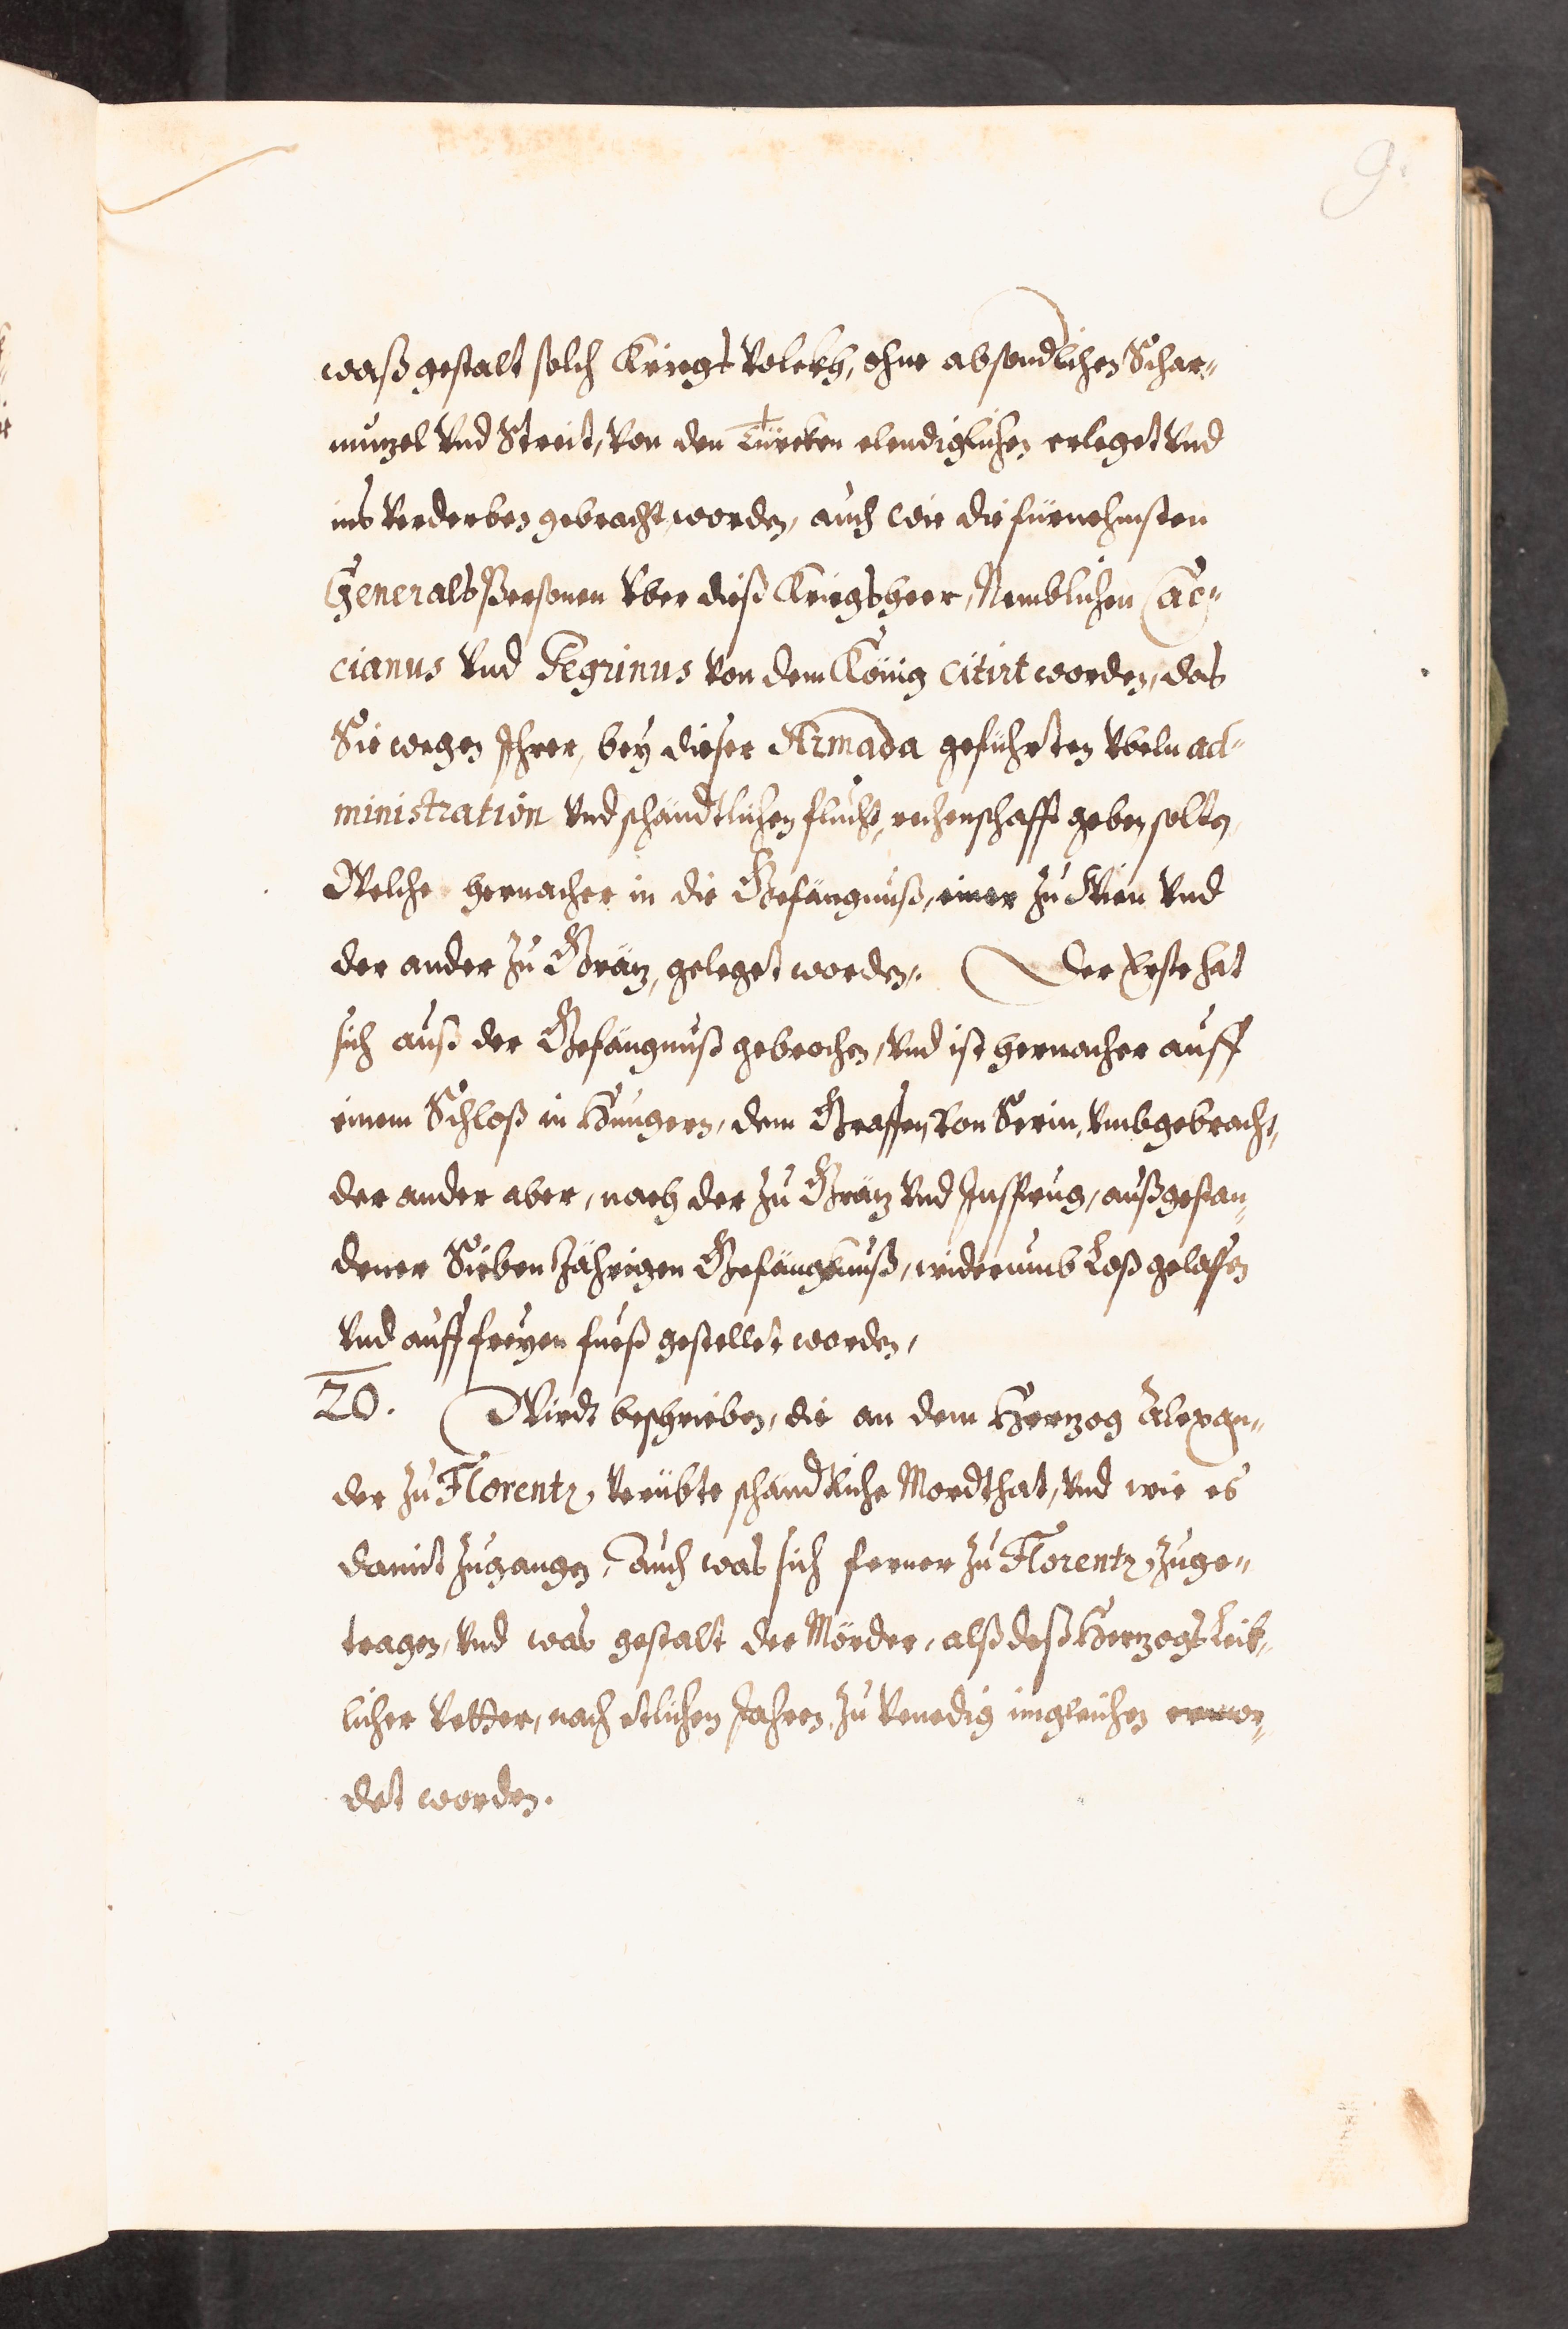 9.
waß gestalt solch Kriegs Volckh, ohne absondlichen Schar-
mutzel vnd Streit, von den Türcken elendiglichen erleget vnd
ins Verderben gebracht worden, auch wie die fürnehmsten
Generals Persohnen vber dieß Kriegsheer, Nemblichen Cac-
cianus vnd Pegrinus von dem König citirt worden, das
Sie wegen Ihrer, bey dieser Armada geführten vbeln ad-
ministration vnd schändtlichen flucht, rechenschafft geben solten,
Welche hernacher in die Gefängnuß, einer zu Wien vnd
der ander zu Grätz, geleget worden. Der Erste hat
sich auß der Gefängnuß gebrochen, vnd ist hernacher auff
einem Schloß in Hungern, dem Graffen von Serin, vmbgebracht,
der ander aber, nach der zu Grätz vnd Insprug, außgestan-
dener Sieben Jährigen Gefängknuß, widerumb Loß gelassen
vnd auff freyen fueß gestellet worden,
20. Wirdt beschrieben, die an dem Hertzog Alexan-
der zu Florentz, verübte schändtliche Mordthat, vnd wie es
damit zugangen, Auch was sich ferner zu Florentz, zuge-
tragen, vnd was gestalt der Mörder, alß deß Hertzogs Leib-
licher Vetter, nach etlichen Jahren, zu Venedig imgleichen ermor-
det worden.